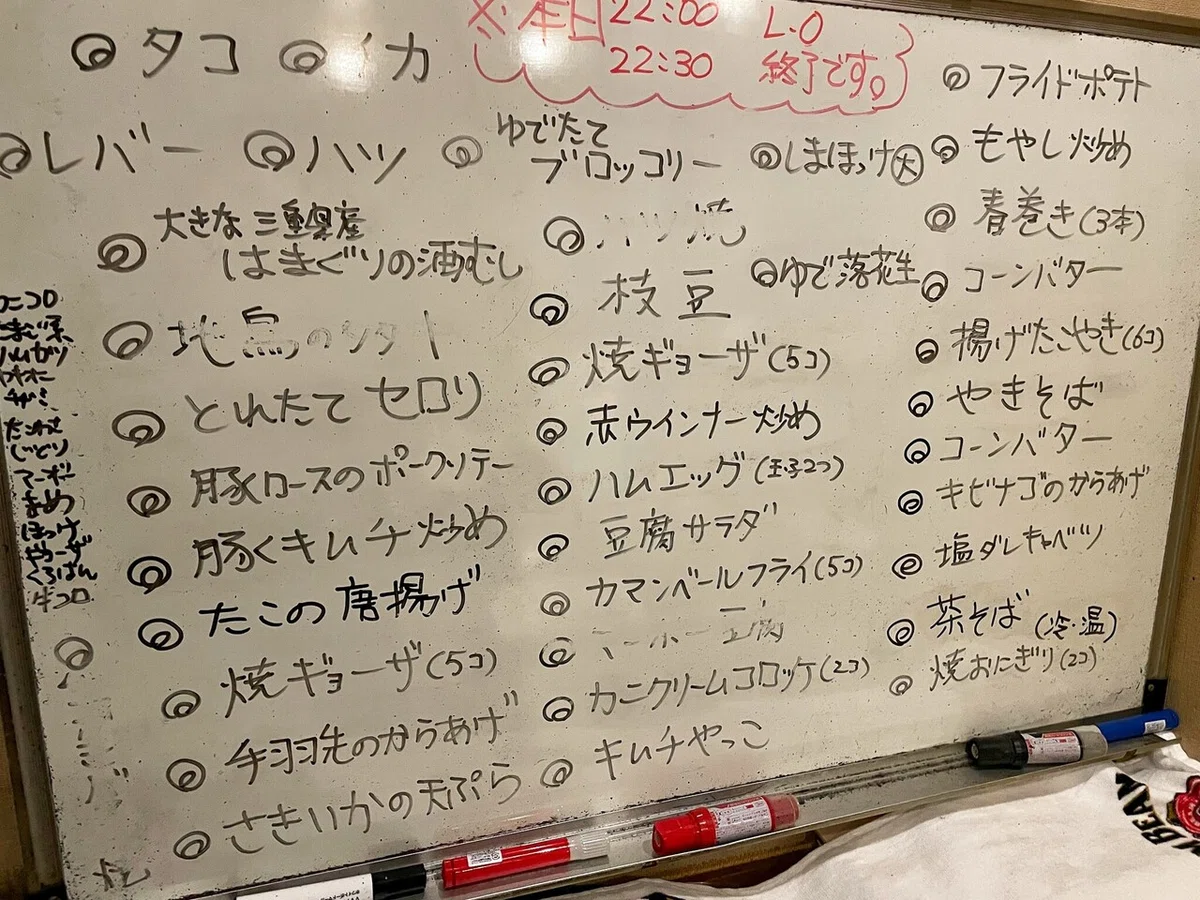 ◎タコ ◎イカ
※本日 22:00 L.O
22:30 終了です。
◎レバー ◎ハツ
◎大きな三重県産
はまぐりの酒むし
◎地鳥の
◎とれたてセロリ
◎豚ロースのポークソテー
◎豚くキムチ炒め
◎たこの唐揚げ
◎焼ギョーザ(5コ)
◎手羽先のからあげ
◎さきいかの天ぷら
◎ゆでたて
ブロッコリー
◎しまほっけ大
◎枝豆
◎ゆで落花生
◎焼ギョーザ(5コ)
◎赤ウインナー炒め
◎ハムエッグ(玉子2つ)
◎豆腐サラダ
◎カマンベールフライ(5コ)
◎マーボー豆腐
◎カニクリームコロッケ(2コ)
◎キムチやっこ
◎フライドポテト
◎もやし炒め
◎春巻き(3本)
◎コーンバター
◎揚げたこやき(6コ)
◎やきそば
◎コーンバター
◎キビナゴのからあげ
◎塩ダレキャベツ
◎茶そば(冷・温)
◎焼おにぎり(2コ)
ハムカツ
じっとり
マーボー
まめ
ほっけ
くろぱん
牛コロ
BEAN